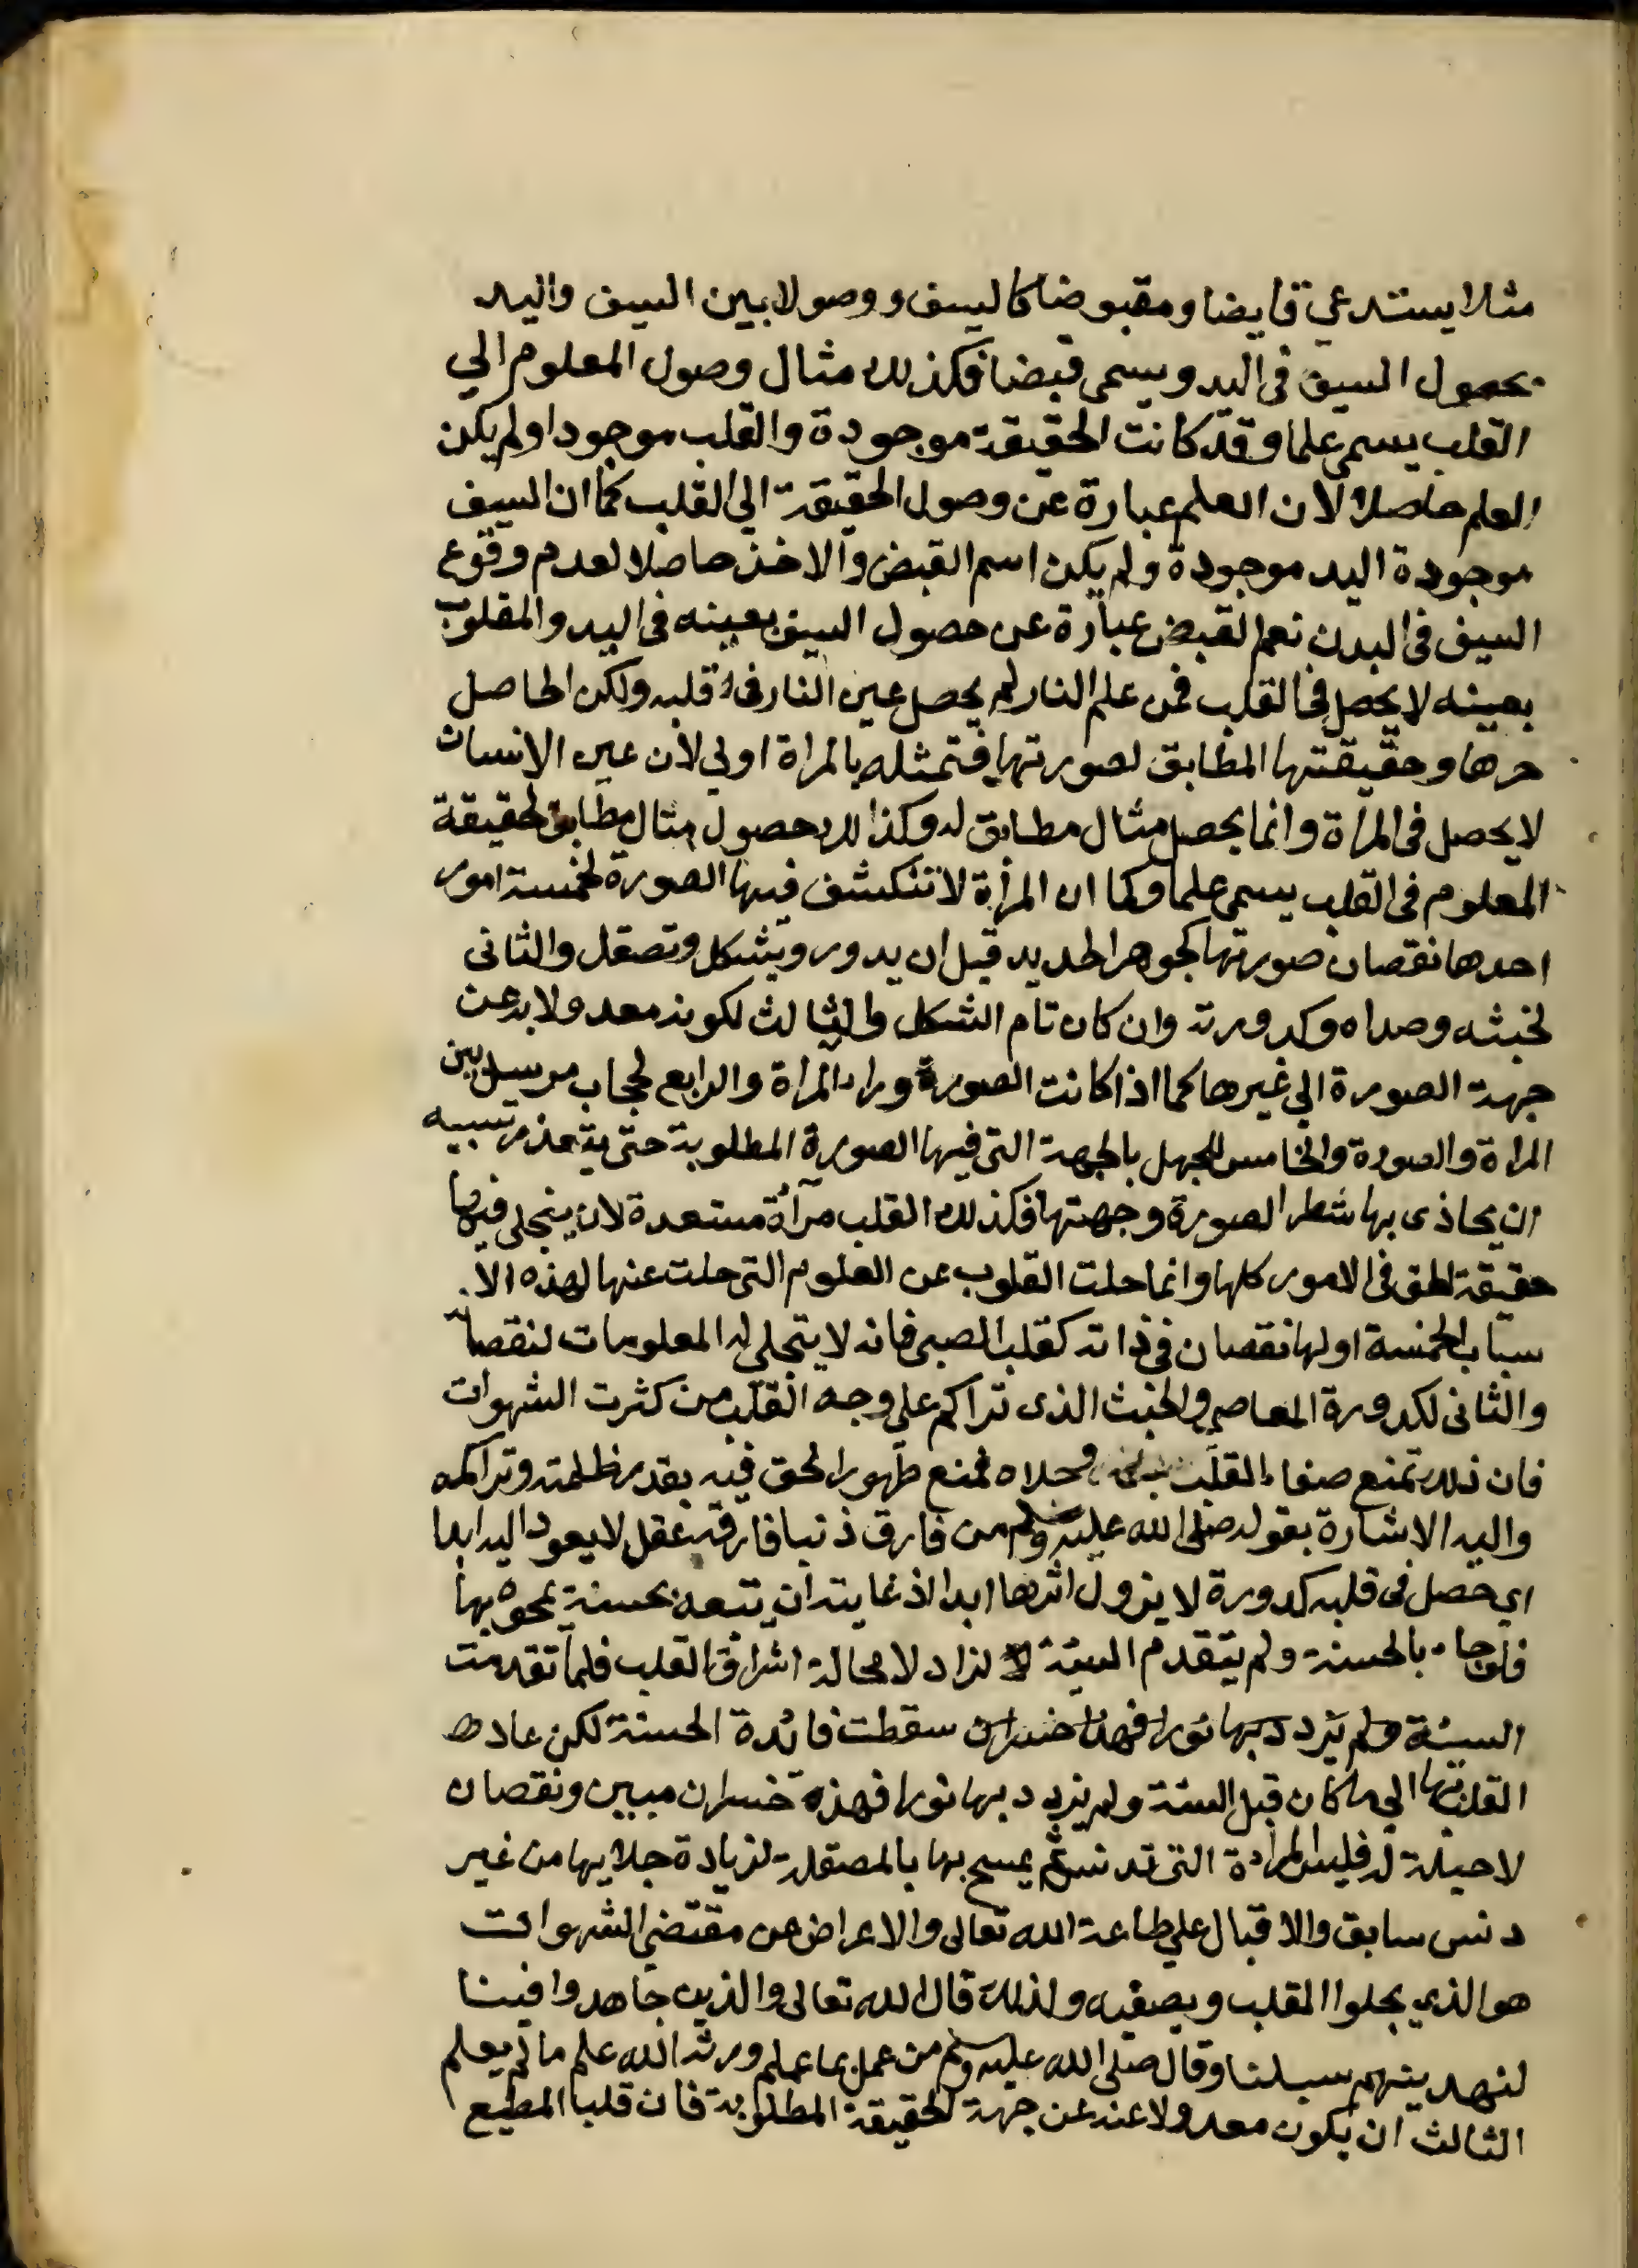 مثلا يستدعي قابضا ومقبوضا كاليسف ووصولا بين السيف واليد
بحصول السيف في اليد ويسمى قبضا فكذلك مثال وصول المعلوم الي
القلب يسمى علما وقد كانت الحقيقة موجودة والقلب موجودا ولم يكن
العلم حاصلا لان العلم عبارة عن وصول الحقيقة الي القلب كما ان السيف
موجودة اليد موجودة ولم يكن اسم القبض والاخذ حاصلا لعدم وقوع
السيف في اليدن نعم القبض عبارة عن حصول السيف بعينه في اليد والمقلوب
بعينه لا يحصل في القلب فمن علم النار لم يحصل عين النار في قلبه ولكن الحاصل
حرها وحقيقتها المطابق لصورتها فتمثله بالمراة اولي لأن عين الانسان
لا يحصل في المرأة وانما يحصل مثال مطابق له وكذالك حصول مثال مطابق لحقيقة
المعلوم في القلب يسمى علما وكما ان المرأة لا تنكشف فيها الصورة لخمسة امور
احدها نقصان صورتها كجوهر الحديد قبل ان يدور ويشكل وتصقل والثاني
لخبثه وصداه وكدورته وان كان تام الشكل والثالث لكونه معدولا به عن
جهة الصورة الي غيرها كما اذا كانت الصورة وراء المراة والرابع لحجاب مرسل بين
المراة والصورة والخامس للجهل بالجهة التي فيها الصورة المطلوبة حتى يتعذر بسببه
ان يحاذى بها شطر الصورة وجهتها فكذلك القلب مرآة مستعدة لان ينجلي فيها
حقيقة الحق في الامور كلها وانما خلت القلوب عن العلوم التي خلت عنها لهذه الا
سباب الخمسة اولها نقصان في ذاته كقلب الصبي فانه لا يتجلى له المعلومات لنقصانه
والثاني لكدورة المعاصي والخبث الذى تراكم على وجه القلب من كثرت الشهوات
فان ذلك تمنع صفاء القلب وجلاه فمنع ظهور الحق فيه بقدر ظلمته وتراكمه
واليه الاشارة بقوله صلى الله عليه وسلم من فارق ذنبا فارقه عقل لا يعود اليه ابدا
اي حصل في قلبه كدورة لا يزول اثرها ابدا اذ غايته ان يتبعه بحسنة يمحوه بها
فلو جاء بالحسنة ولم يتقدم السيئة لازاد لا محالة اشراق القلب فلما تقدمت
السيئة ولم يزدد بها نورا فهذا خسران سقطت فائدة الحسنة لكن عاد
القلب بها الي ما كان قبل السيئة ولم يزدد بها نورا فهذه خسران مبين ونقصان
لا حيلة له فليس المرآة التي تدنس ثم يمسح بها بالمصقلة لزيادة جلايها من غير
دنس سابق والاقبال علي طاعة الله تعالى والاعراض عن مقتضي الشهوات
هو الذي يجلوا القلب ويصفيه ولذلك قال الله تعالى والذين جاهدوا فينا
لنهدينهم سبلنا وقال صلى الله عليه وسلم من عمل بما علم ورثه الله علم ما لم يعلم
الثالث ان يكون معدولا عنه عن جهة الحقيقة المطلوبة فان قلبا المطيع